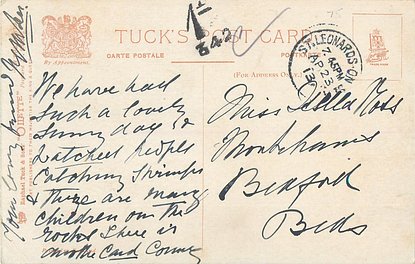 TUCK'S POST CARD
CARTE POSTALE
POSTKARTE
By Appointment.
(FOR ADDRESS ONLY)
342
ST. LEONARDS-ON-
4.45PM
AP 23
We have had
such a lovely
Sunny day &
watched people
Catching Shrimps
& there are many
children on the
rocks There is
another Card Coming
Your loving
Raphael Tuck & Sons
OILETTE
Miss Della Voss
Bedford
Beds